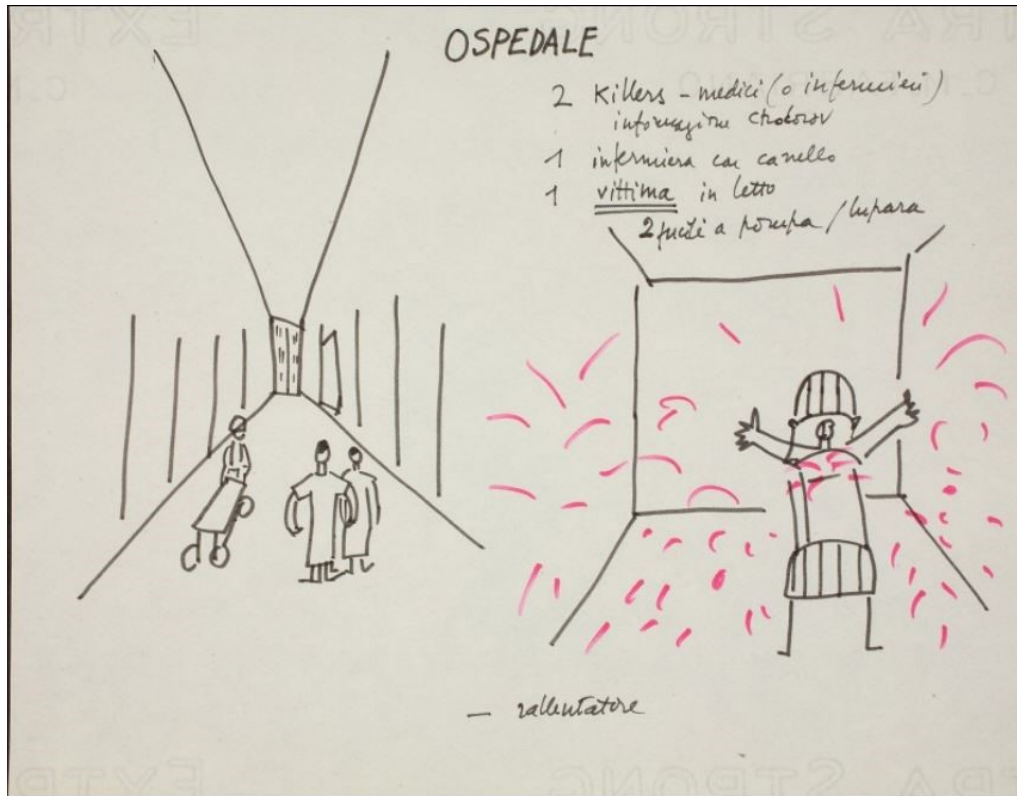 OSPEDALE
2 Killers - medici (o infermieri)
informazione
1 infermiera con carrello
1 vittima in letto
2 fucili a pompa / lupara
— rallentatore
EXTRA STRONG
EXTRA STRONG